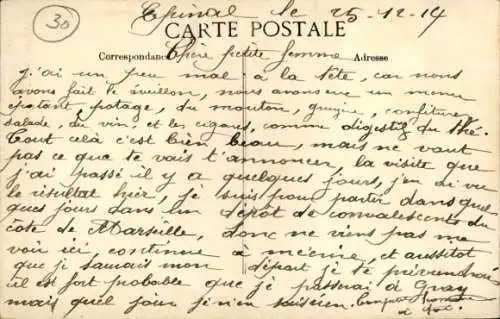 30
Epinal le 25-12-14
CARTE POSTALE
Correspondance Chère petite femme Adresse
J'ai un peu mal à la tête, car nous
avons fait le éveillon, nous avons eu un menu
épatant, potage, du mouton, gruyère, confiture
salade, du vin, et les cigares, comme digestif du thé.
Tout celà c'est bien beau, mais ne vaut
pas ce que te vais t'annoncer, la visite que
j'ai passé il y a quelques jours, j'en ai vu
le résultat hier, je suis pour partir dans quel
ques jours dans un dépôt de convalescents du
côte de Marseille, donc ne viens pas me
voir ici continue à m'écrire, et aussitot
que je saurais mon départ je te préviendrais
il est fort probable que je passerai à Gray
mais quel jour je n'en sais rien.